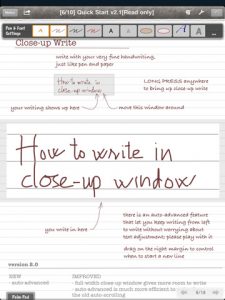 [6/10] Quick Start v2.1[Read only]
Pen & Font
Settings
Close-up Write
write with your very fine handwriting,
just like pen and paper
How to write in
close-up window
LONG PRESS anywhere
to bring up close-up write
your writing shows up here
move this window around
How to write in
close-up window
you write in here
there is an auto-advanced feature
that let you keep writing from left
to write without worrying about
text adjustment; please play with it
drag on the right margin to control
when to start a new line
version 2.0
NEW
- auto advanced
IMPROVED
- full width close-up window gives more room to write
- auto-advanced is much more efficient to
the old auto-scrolling
Palm Pad
6/10